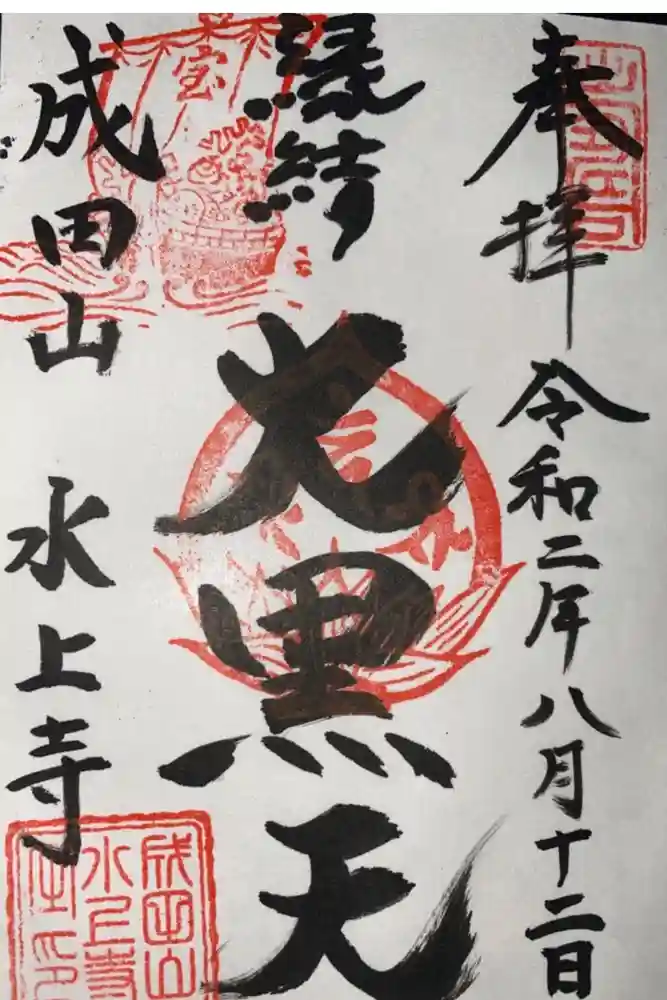 奉拝
令和二年八月十二日
縁結
大黒天
成田山
水上寺
宝
成田山
水上寺